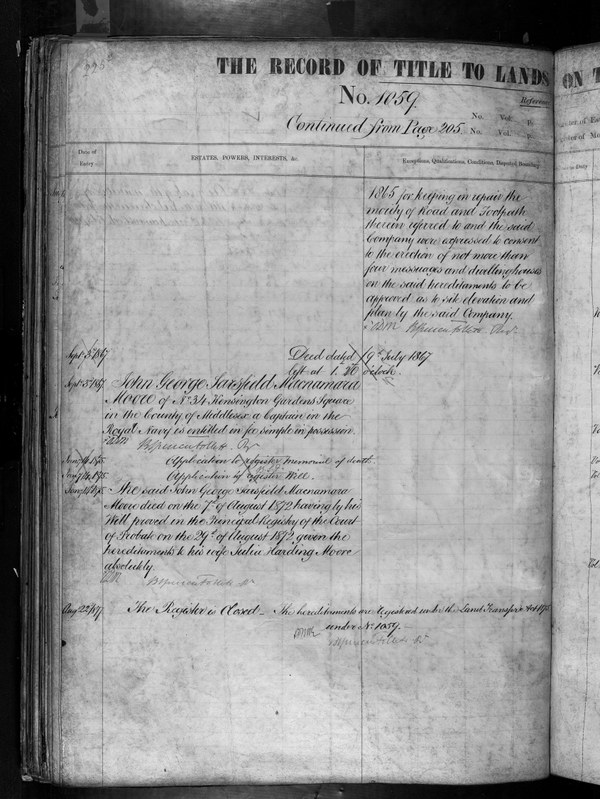 THE RECORD OF TITLE TO LANDS
No. 1059.
Continued from Page 205.
Reference
No. Vol. P.
No. Vol.
Date of Entry
ESTATES, POWERS, INTERESTS, &c.
Exceptions, Qualifications, Conditions, Disputed Boundary
1865 for keeping in repair the
moiety of Road and Footpath
therein referred to and the said
Company were expressed to consent
to the erection of not more than
four messuages and dwellinghouses
on the said hereditaments to be
approved as to site elevation and
plan by the said Company.
Sept 5 1867
Deed dated 9th July 1867
left at 1. 20 oclock.
Sept 5 1867
John George Sausfield Macnamara
Moore of No 34 Kensington Gardens Square
in the County of Middlesex a Captain in the
Royal Navy is entitled in fee simple in possession.
Jany 14 1875
Application to register memorial of death.
Jany 14 1875
Application to register Will.
Jany 14 1875
The said John George Sausfield Macnamara
Moore died on the 7th of August 1872 having by his
Will proved in the Principal Registry of the Court
of Probate on the 29th of August 1872 given the
hereditaments to his wife Julia Harding Moore
absolutely
Aug 22
The Register is Closed - The hereditaments are registered under the Land Transfer Act
under No. 1059.
ON T